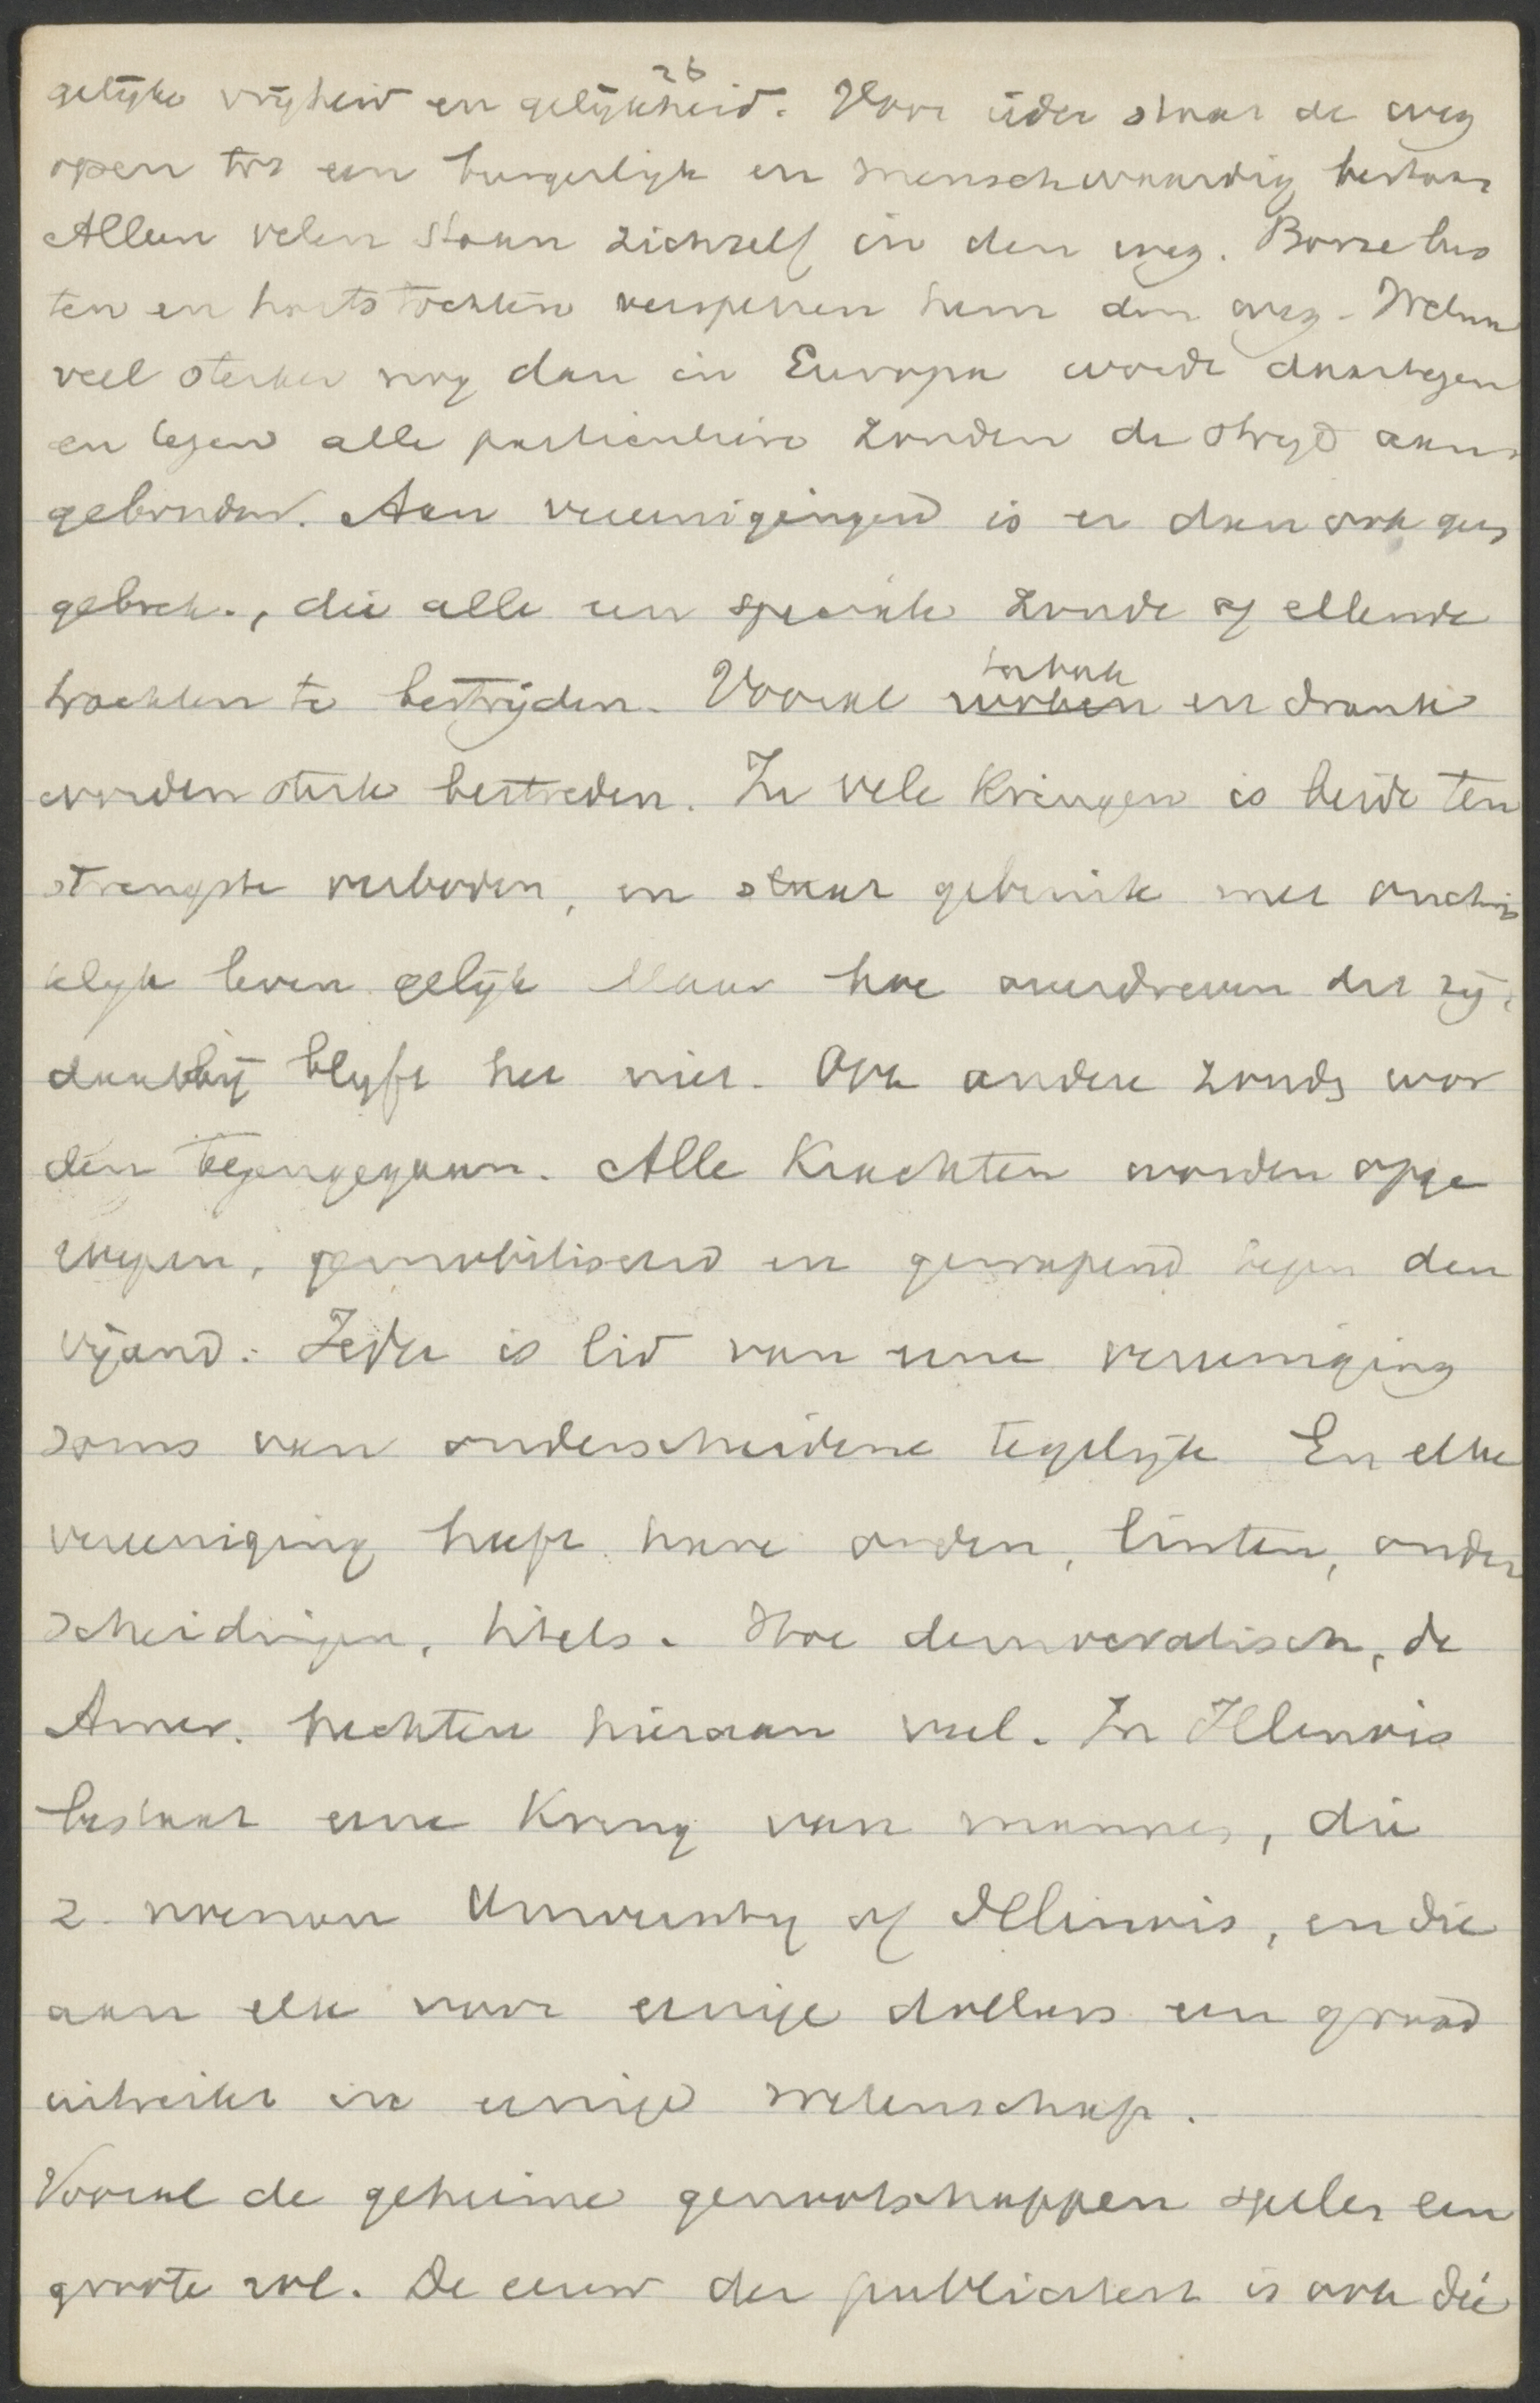 26
gelijke vrijheid en gelijkheid. Voor ieder staat de weg
open tot een burgerlijk en menschwaardig bestaan
Alleen velen staan zichzelf in den weg. Booze lus
ten en hartstochten versperren hem den weg. Welnu
veel sterker nog dan in Europa wordt daartegen
en tegen alle particuliere zonden de strijd aan
gebonden. Aan vereenigingen is er dan ook geen
gebrek, die alle een speciale zonde of ellende
trachten te bestrijden. Vooral tabak en drank
worden sterk bestreden. In vele kringen is beide ten
strengste verboden, en staat gebruik met onchris
telijk leven gelijk Maar hoe overdreven dit zij,
daarbij blijft het niet. Ook andere zonden wor
den tegengegaan. Alle krachten worden opge
roepen, gemobiliseerd en gewapend tegen den
vijand. Ieder is lid van eene vereeniging
soms van onderscheidene tegelijk En elke
vereeniging heeft hare orden, linten, onder
scheidingen, titels. Hoe democratisch, de
Amer. hechten hieraan veel. In Illinois
bestaat eene kring van mannen, die
z. noemen University of Illinois, en die
aan elk voor eenige dollars een graad
uitreikt in eenige wetenschap.
Vooral de geheime genootschappen spelen een
groote rol. De eeuw der publiciteit is ook die